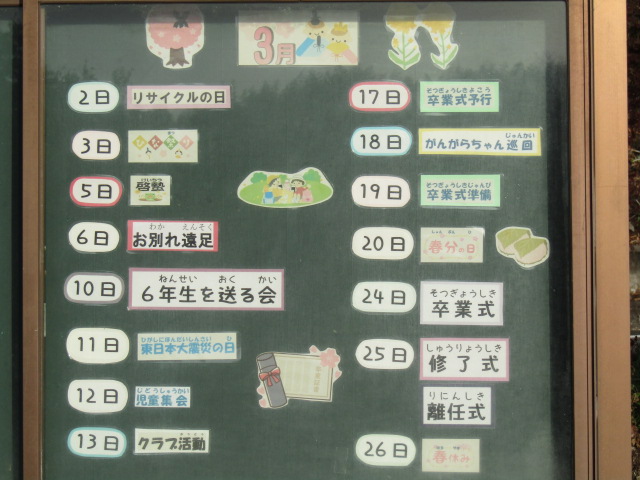 3月
2日 リサイクルの日
3日 ひなまつり
けいちつ
5日 啓蟄
わか えんそく
6日 お別れ遠足
ねんせい おく かい
10日 6年生を送る会
ひがしにほんだいしんさい ひ
11日 東日本大震災の日
じどうしゅうかい
12日 児童集会
13日 クラブ活動
そつぎょうしきよこう
17日 卒業式予行
じゅんかい
18日 がんがらちゃん巡回
そつぎょうしきじゅんび
19日 卒業式準備
20日 春分の日
そつぎょうしき
24日 卒業式
しゅうりょうしき
25日 修了式
りにんしき
離任式
26日 春休み